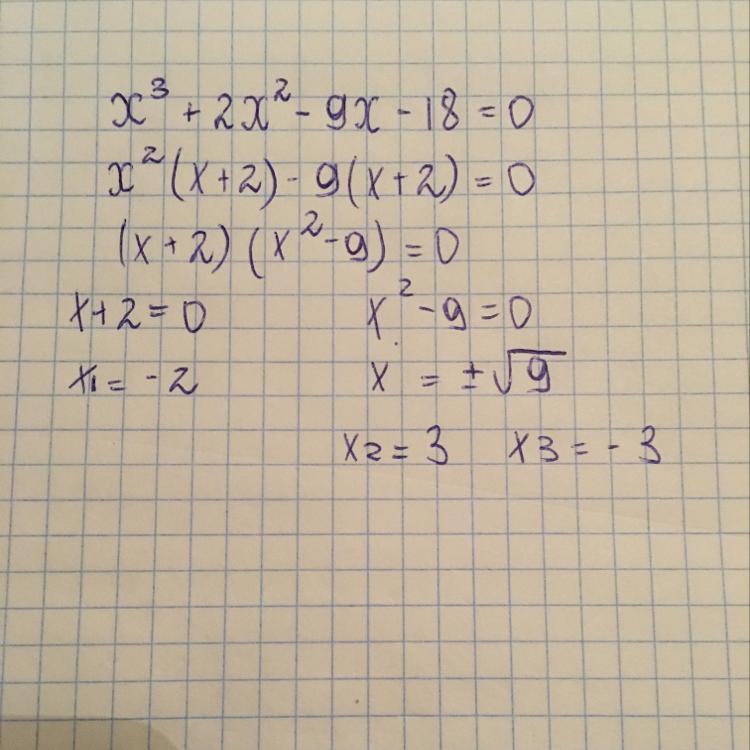 x³ + 2x² - 9x - 18 = 0
x²(x+2) - 9(x+2) = 0
(x+2)(x²-9) = 0
x+2=0 x²-9=0
x₁= -2 x = ±√9
x₂=3 x₃=-3